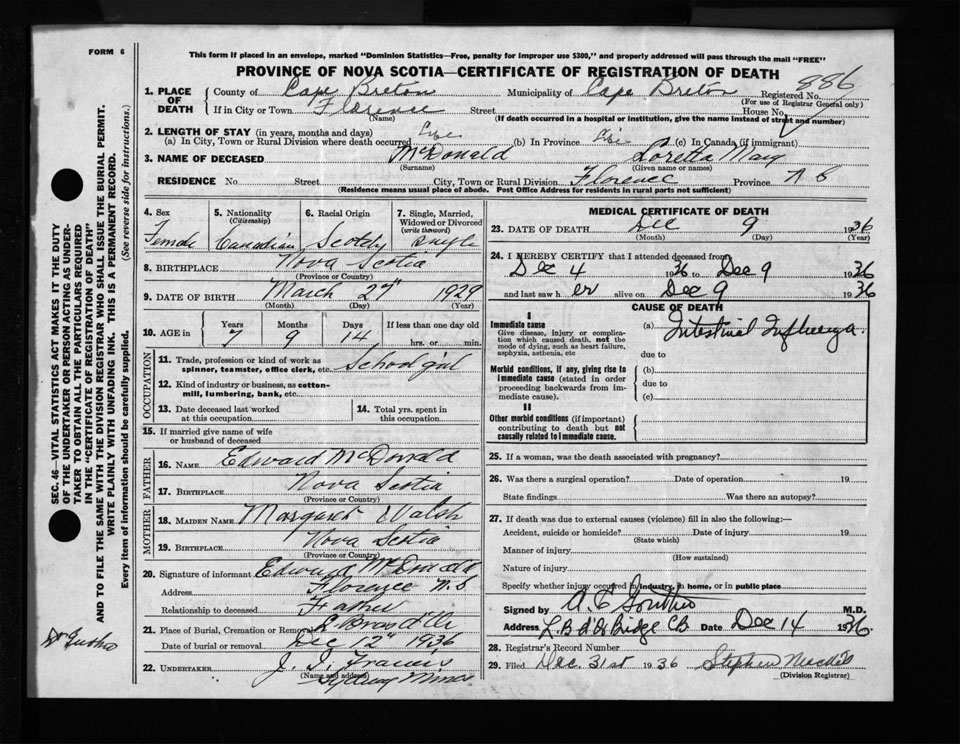 FORM 6
This form if placed in an envelope, marked "Dominion Statistics—Free, penalty for improper use $300," and properly addressed will pass through the mail "FREE"
PROVINCE OF NOVA SCOTIA—CERTIFICATE OF REGISTRATION OF DEATH
886
1. PLACE OF DEATH
County of Cape Breton Municipality of Cape Breton Registered No.
(For use of Registrar General only)
If in City or Town Florence Street House No.
(Name) (If death occurred in a hospital or institution, give the name instead of street and number)
2. LENGTH OF STAY (in years, months and days)
(a) In City, Town or Rural Division where death occurred Life (b) In Province Life (c) In Canada (if immigrant)
3. NAME OF DECEASED McDonald Loretta Mary
(Surname) (Given name or names)
RESIDENCE No Street City, Town or Rural Division Florence Province N S
(Residence means usual place of abode. Post Office Address for residents in rural parts not sufficient)
4. Sex Female
5. Nationality (Citizenship) Canadian
6. Racial Origin Scotch
7. Single, Married, Widowed or Divorced (write the word) Single
8. BIRTHPLACE Nova Scotia
(Province or Country)
9. DATE OF BIRTH March 27" 1929
(Month) (Day) (Year)
10. AGE in Years 7 Months 9 Days 14 If less than one day old hrs. or min.
OCCUPATION
11. Trade, profession or kind of work as spinner, teamster, office clerk, etc. School girl
12. Kind of industry or business, as cotton-mill, lumbering, bank, etc.
13. Date deceased last worked at this occupation
14. Total yrs. spent in this occupation
15. If married give name of wife or husband of deceased
FATHER
16. NAME Edward McDonald
17. BIRTHPLACE Nova Scotia
(Province or Country)
MOTHER
18. MAIDEN NAME Margaret Walsh
19. BIRTHPLACE Nova Scotia
(Province or Country)
20. Signature of informant Edward McDonald
Address Florence N.S
Relationship to deceased Father
21. Place of Burial, Cremation or Removal
Date of burial or removal Dec 12" 1936
22. UNDERTAKER J. J. Francis
(Name and address) Sydney Mines
MEDICAL CERTIFICATE OF DEATH
23. DATE OF DEATH Dec 9 1936
(Month) (Day) (Year)
24. I HEREBY CERTIFY that I attended deceased from
Dec 4 1936 to Dec 9 1936
and last saw her alive on Dec 9 1936
CAUSE OF DEATH
I
Immediate cause
Give disease, injury or complication which caused death, not the mode of dying, such as heart failure, asphyxia, asthenia, etc
(a) Intestinal Influenza.
due to
Morbid conditions, if any, giving rise to immediate cause (stated in order proceeding backwards from immediate cause).
(b)
due to
(c)
II
Other morbid conditions (if important) contributing to death but not causally related to immediate cause.
25. If a woman, was the death associated with pregnancy?
26. Was there a surgical operation? Date of operation 19
State findings Was there an autopsy?
27. If death was due to external causes (violence) fill in also the following:—
Accident, suicide or homicide? Date of injury 19
(State which)
Manner of injury
(How sustained)
Nature of injury
Specify whether injury occurred in industry, in home, or in public place
Signed by M.D.
Address Date Dec 14 1936.
28. Registrar's Record Number
29. Filed Dec. 31st 1936 Stephen
(Division Registrar)
SEC. 46—VITAL STATISTICS ACT MAKES IT THE DUTY
OF THE UNDERTAKER OR PERSON ACTING AS UNDER-
TAKER TO OBTAIN ALL THE PARTICULARS REQUIRED
IN THE "CERTIFICATE OF REGISTRATION OF DEATH"
AND TO FILE THE SAME WITH THE DIVISION REGISTRAR WHO SHALL ISSUE THE BURIAL PERMIT.
WRITE PLAINLY WITH UNFADING INK. THIS IS A PERMANENT RECORD.
Every item of information should be carefully supplied. (See reverse side for instructions.)